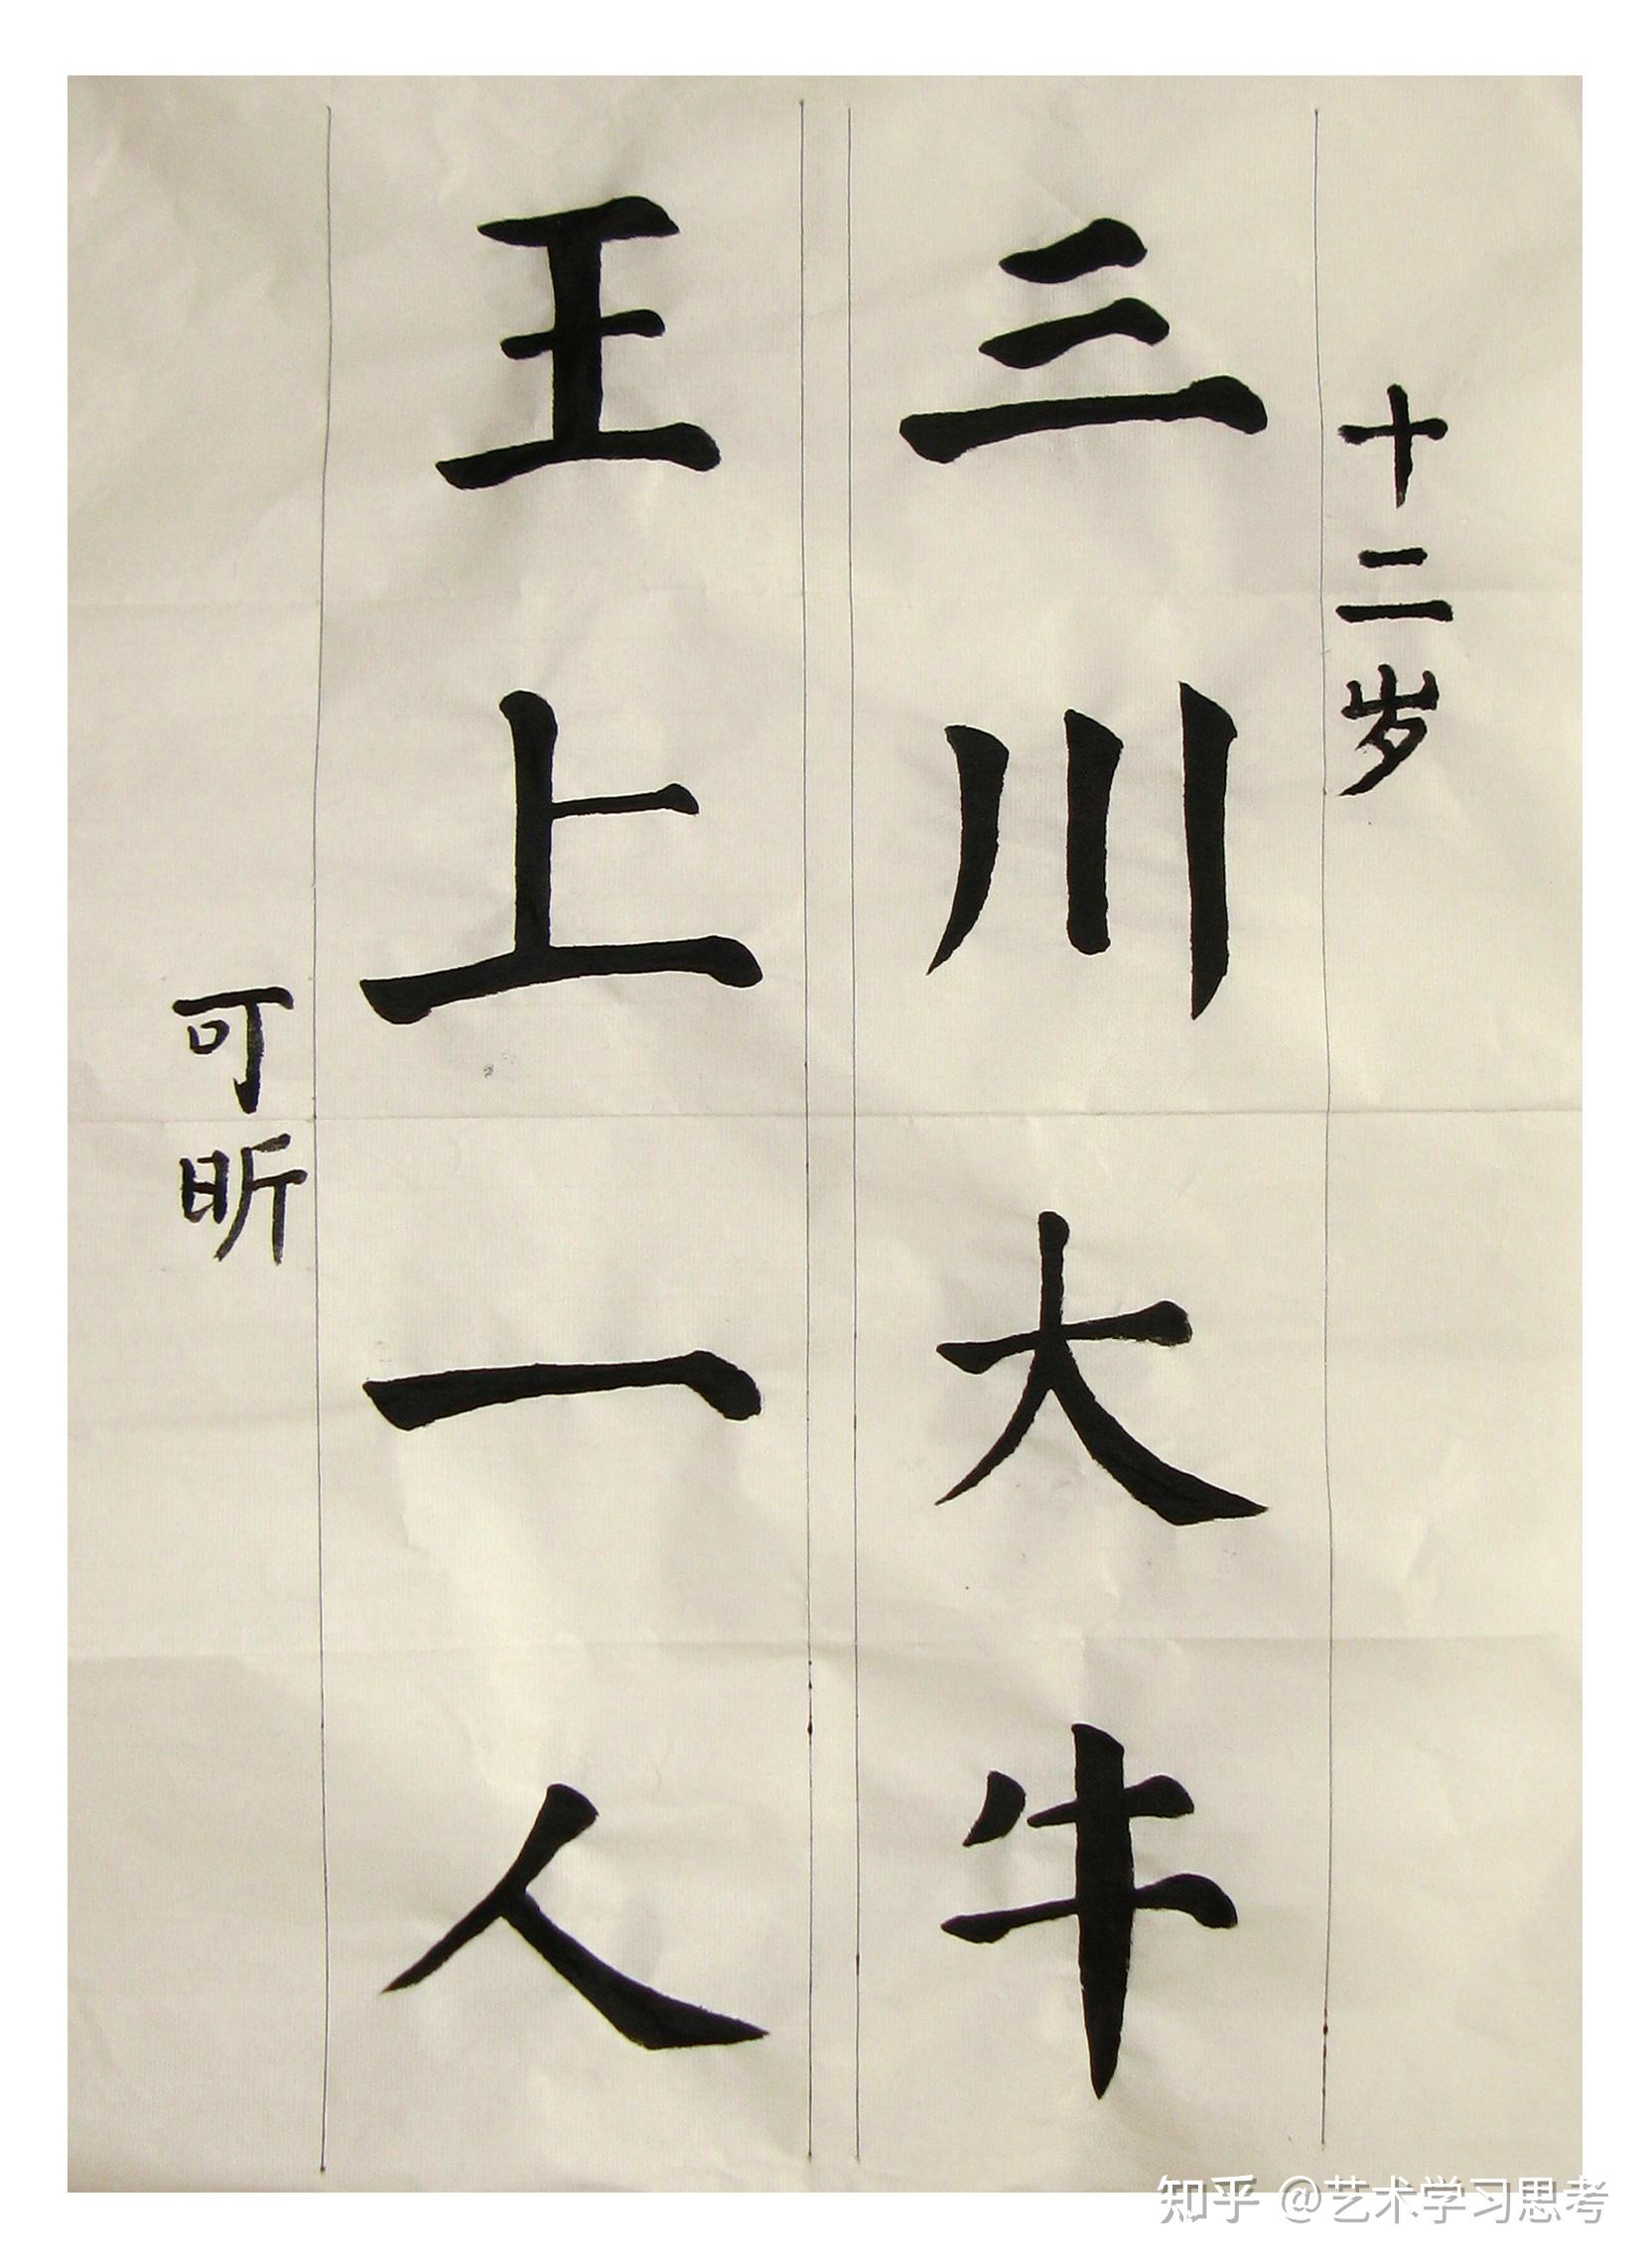 十二岁
三川大牛
王上一人
可昕
知乎 @艺术学习思考